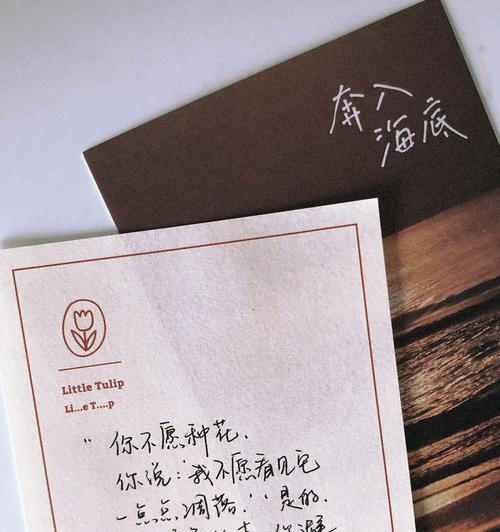 奔入
海底
Little Tulip
Li...e T....p
“你不愿种花.
你说:我不愿看见它
一点点凋落.’’是的.